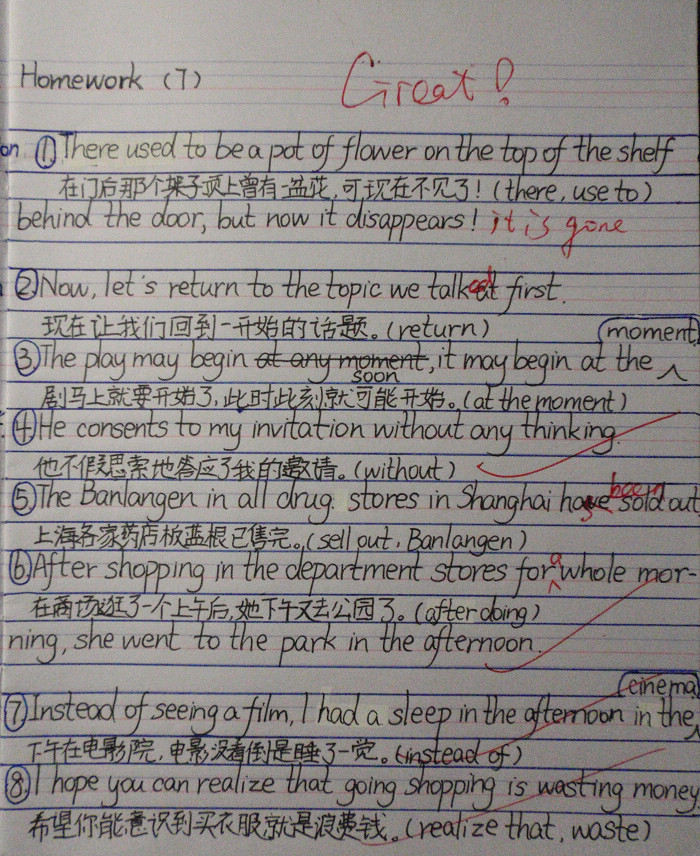 Homework (7)
Great!
on ①There used to be a pot of flower on the top of the shelf
在门后那个架子顶上曾有一盆花,可现在不见了!(there, use to)
behind the door, but now it disappears! it is gone
②Now, let's return to the topic we talk at first.
ed
现在让我们回到一开始的话题。(return)
moment
③The play may begin at any moment, it may begin at the
soon
剧马上就要开始了,此时此刻就可能开始。(at the moment)
④He consents to my invitation without any thinking.
他不假思索地答应了我的邀请。(without)
been
⑤The Banlangen in all drug stores in Shanghai have sold out
上海各家药店板蓝根已售完。(sell out, Banlangen)
a
⑥After shopping in the department stores for whole mor-
在商场逛了一个上午后,她下午又去公园了。(after doing)
ning, she went to the park in the afternoon.
cinema
⑦Instead of seeing a film, I had a sleep in the afternoon in the
下午在电影院,电影没看倒是睡了一觉。(instead of)
⑧I hope you can realize that going shopping is wasting money
希望你能意识到买衣服就是浪费钱。(realize that, waste)